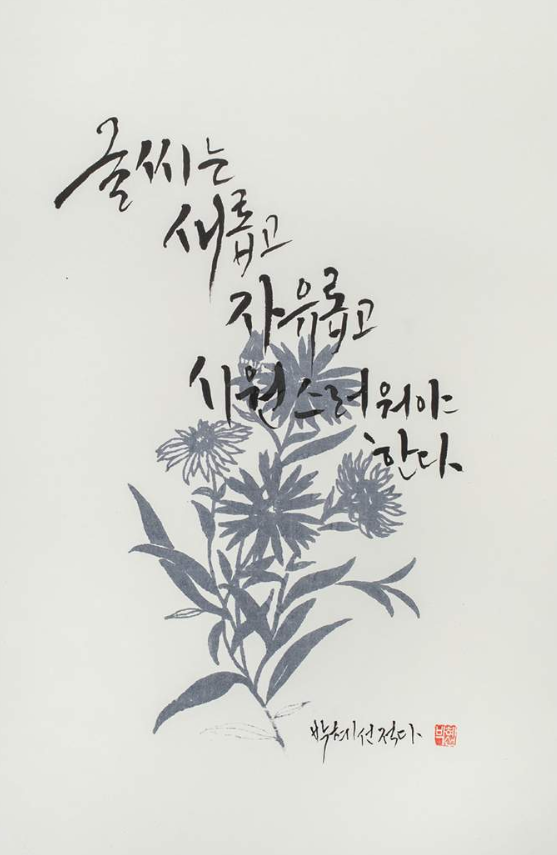 글씨는
새롭고
자유롭고
시원스러워야
한다
박혜선 적다